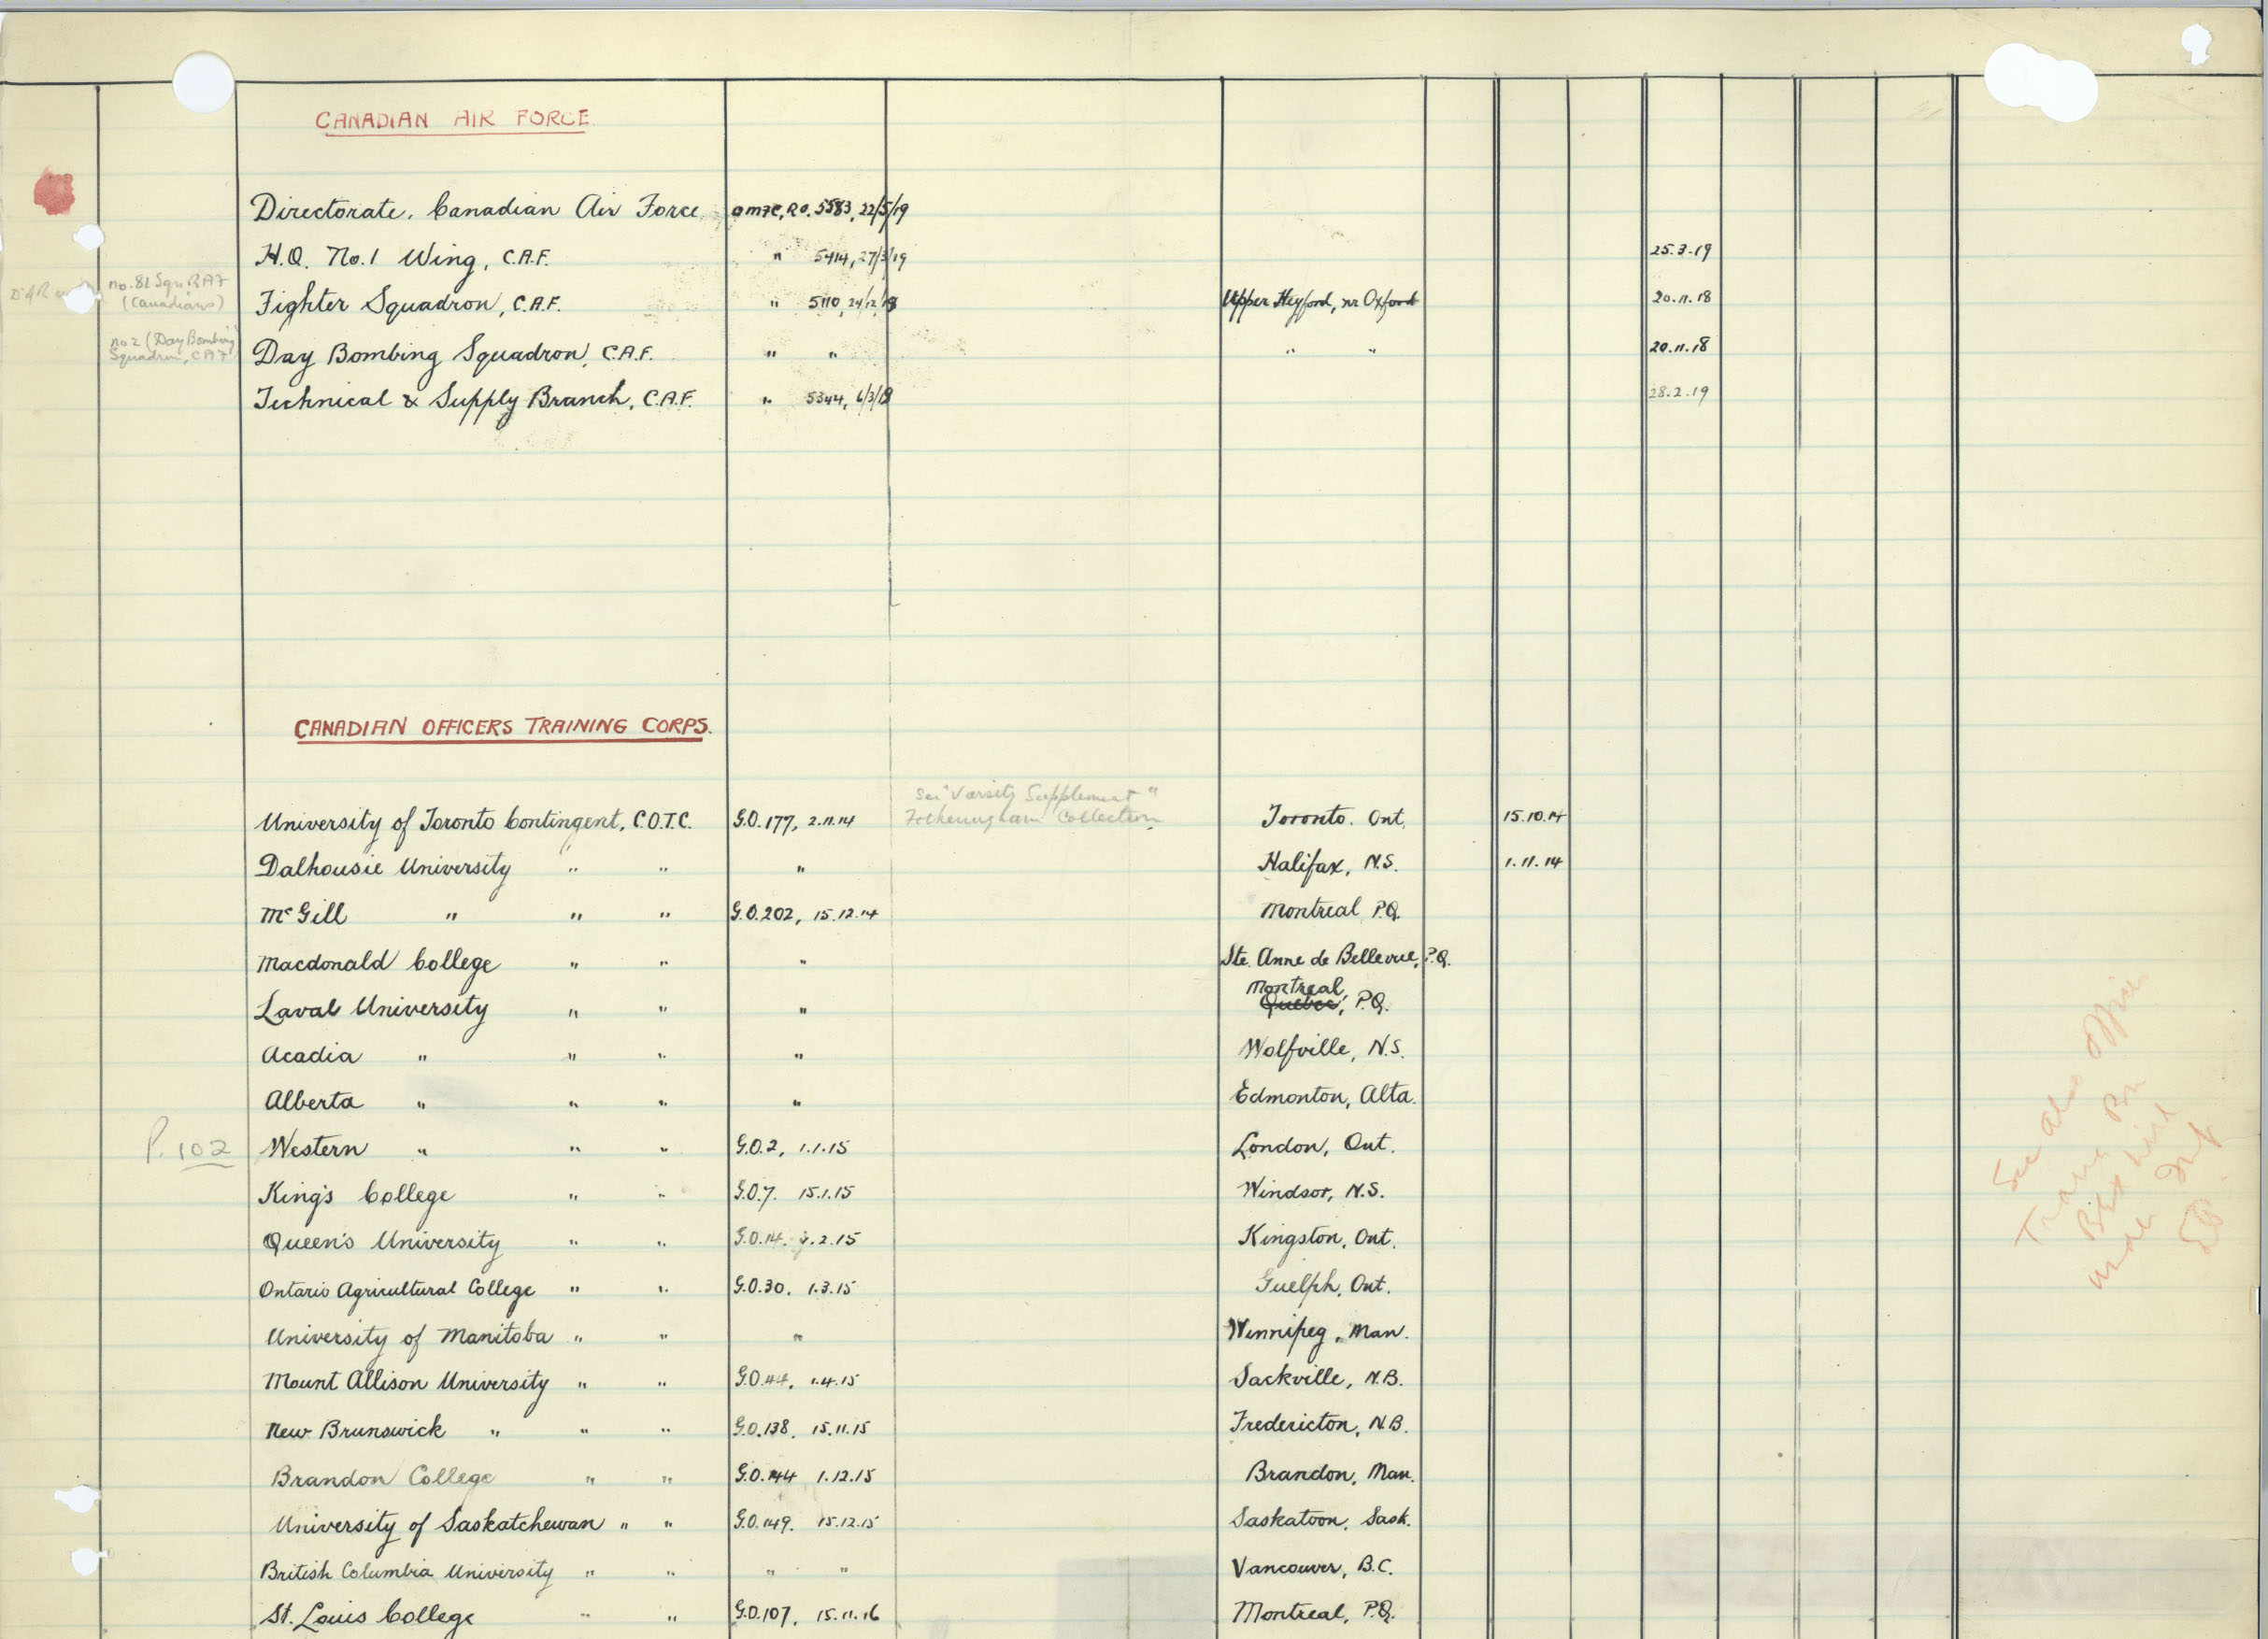 CANADIAN AIR FORCE
Directorate, Canadian Air Force OMFC, RO. 5583, 22/5/19
H.Q. No.1 Wing, C.A.F. " 5414, 27/3/19 25.3.19
no. 81 Sqn RAF
(Canadians)
Fighter Squadron, C.A.F. " 5110, 24/12/18 Upper Heyford, nr Oxford 20.11.18
no 2 (Day Bombing
Squadron, CAF)
Day Bombing Squadron, C.A.F. " " " " 20.11.18
Technical & Supply Branch, C.A.F. " 5344, 6/3/19 28.2.19
CANADIAN OFFICERS TRAINING CORPS.
See "Varsity Supplement"
Fotheringham Collection
University of Toronto Contingent, C.O.T.C. G.O. 177, 2.11.14 Toronto. Ont. 15.10.14
Dalhousie University " " " Halifax, N.S. 1.11.14
McGill " " " G.O. 202, 15.12.14 Montreal P.Q.
Macdonald College " " " Ste. Anne de Bellevue, P.Q.
Montreal
Laval University " " " Quebec, P.Q.
Acadia " " " " Wolfville, N.S.
Alberta " " " " Edmonton, Alta.
P. 102 Western " " " G.O. 2, 1.1.15 London, Ont.
King's College " " G.O. 7. 15.1.15 Windsor, N.S.
Queen's University " " G.O. 14. .2.15 Kingston, Ont.
Ontario Agricultural College " " G.O. 30. 1.3.15 Guelph, Ont.
University of Manitoba " " " Winnipeg, Man.
Mount Allison University " " G.O. 44, 1.4.15 Sackville, N.B.
New Brunswick " " " G.O. 138. 15.11.15 Fredericton, N.B.
Brandon College " " G.O. 144 1.12.15 Brandon, Man.
University of Saskatchewan " " G.O. 149. 15.12.15 Saskatoon, Sask.
British Columbia University " " " " Vancouver, B.C.
St. Louis College " " G.O. 107, 15.11.16 Montreal, P.Q.
See also
Training Bn
under Inf